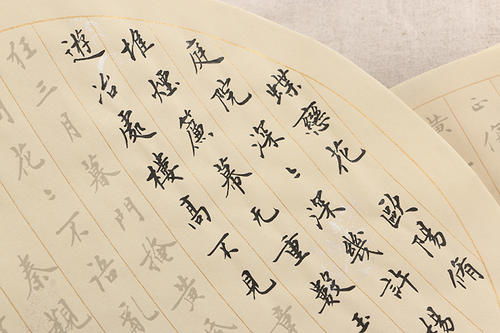 蝶戀花 歐陽脩
庭院深〻深幾許楊
堆煙簾幕无重數玉
遊冶處樓高不見章
狂三月暮門掩黃昏
花〻不語亂
秦觀
黃